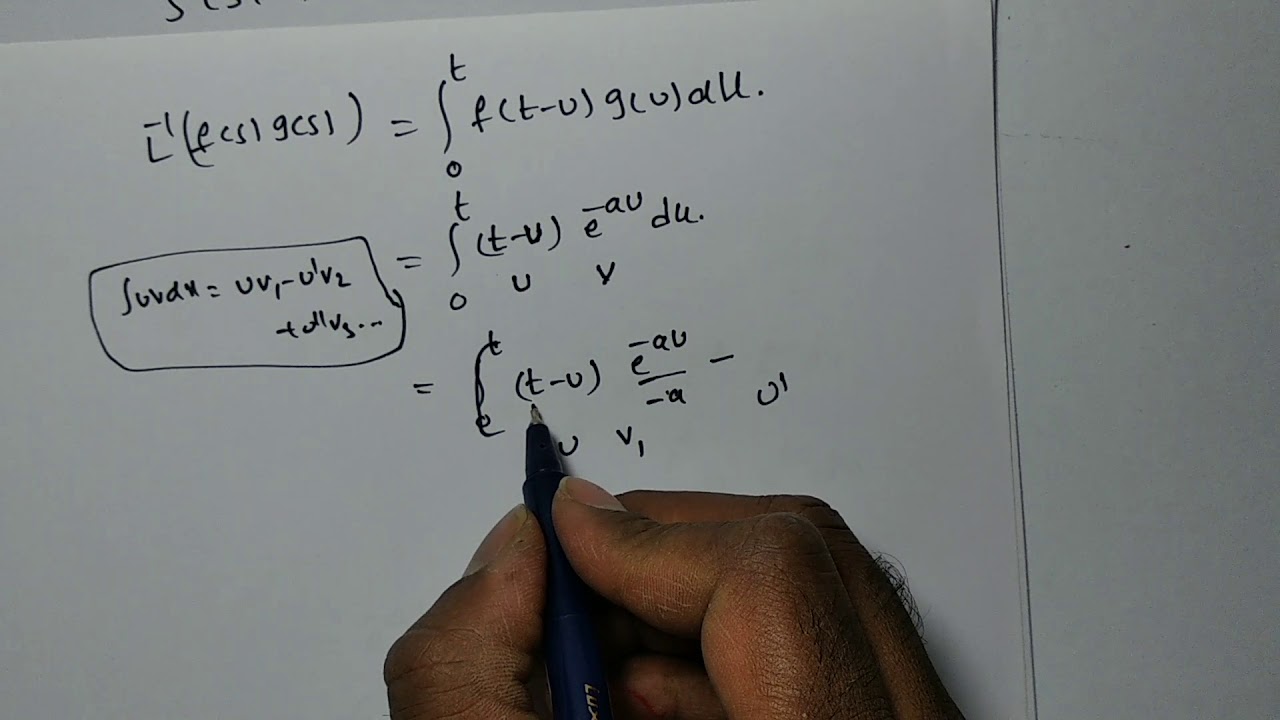 L⁻¹(f(s) g(s)) = ∫₀ᵗ f(t-u) g(u) du.
= ∫₀ᵗ (t-u) e^{-au} du.
u v
∫uvdx = uv₁ - u'v₂
+ u''v₃ ...
= [ᵗ (t-u) e^{-au}/-a - u'
u v₁
LUX